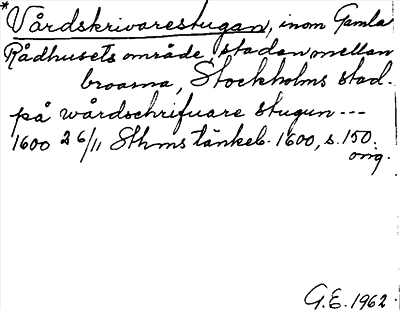 *Vårdskrivarestugan, inom Gamla
Rådhusets område, stadan mellan
broarna, Stockholms stad.
på wårdschrifuare stugun ---
1600 26/11 Sthms tänkeb. 1600, s. 150.
orig.
G.E. 1962.